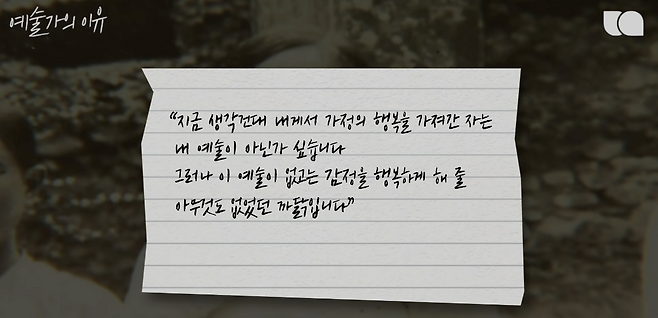 예술가의 이유
“지금 생각건대 내게서 가정의 행복을 가져간 자는
내 예술이 아닌가 싶습니다
그러나 이 예술이 없고는 감정을 행복하게 해 줄
아무것도 없었던 까닭입니다”